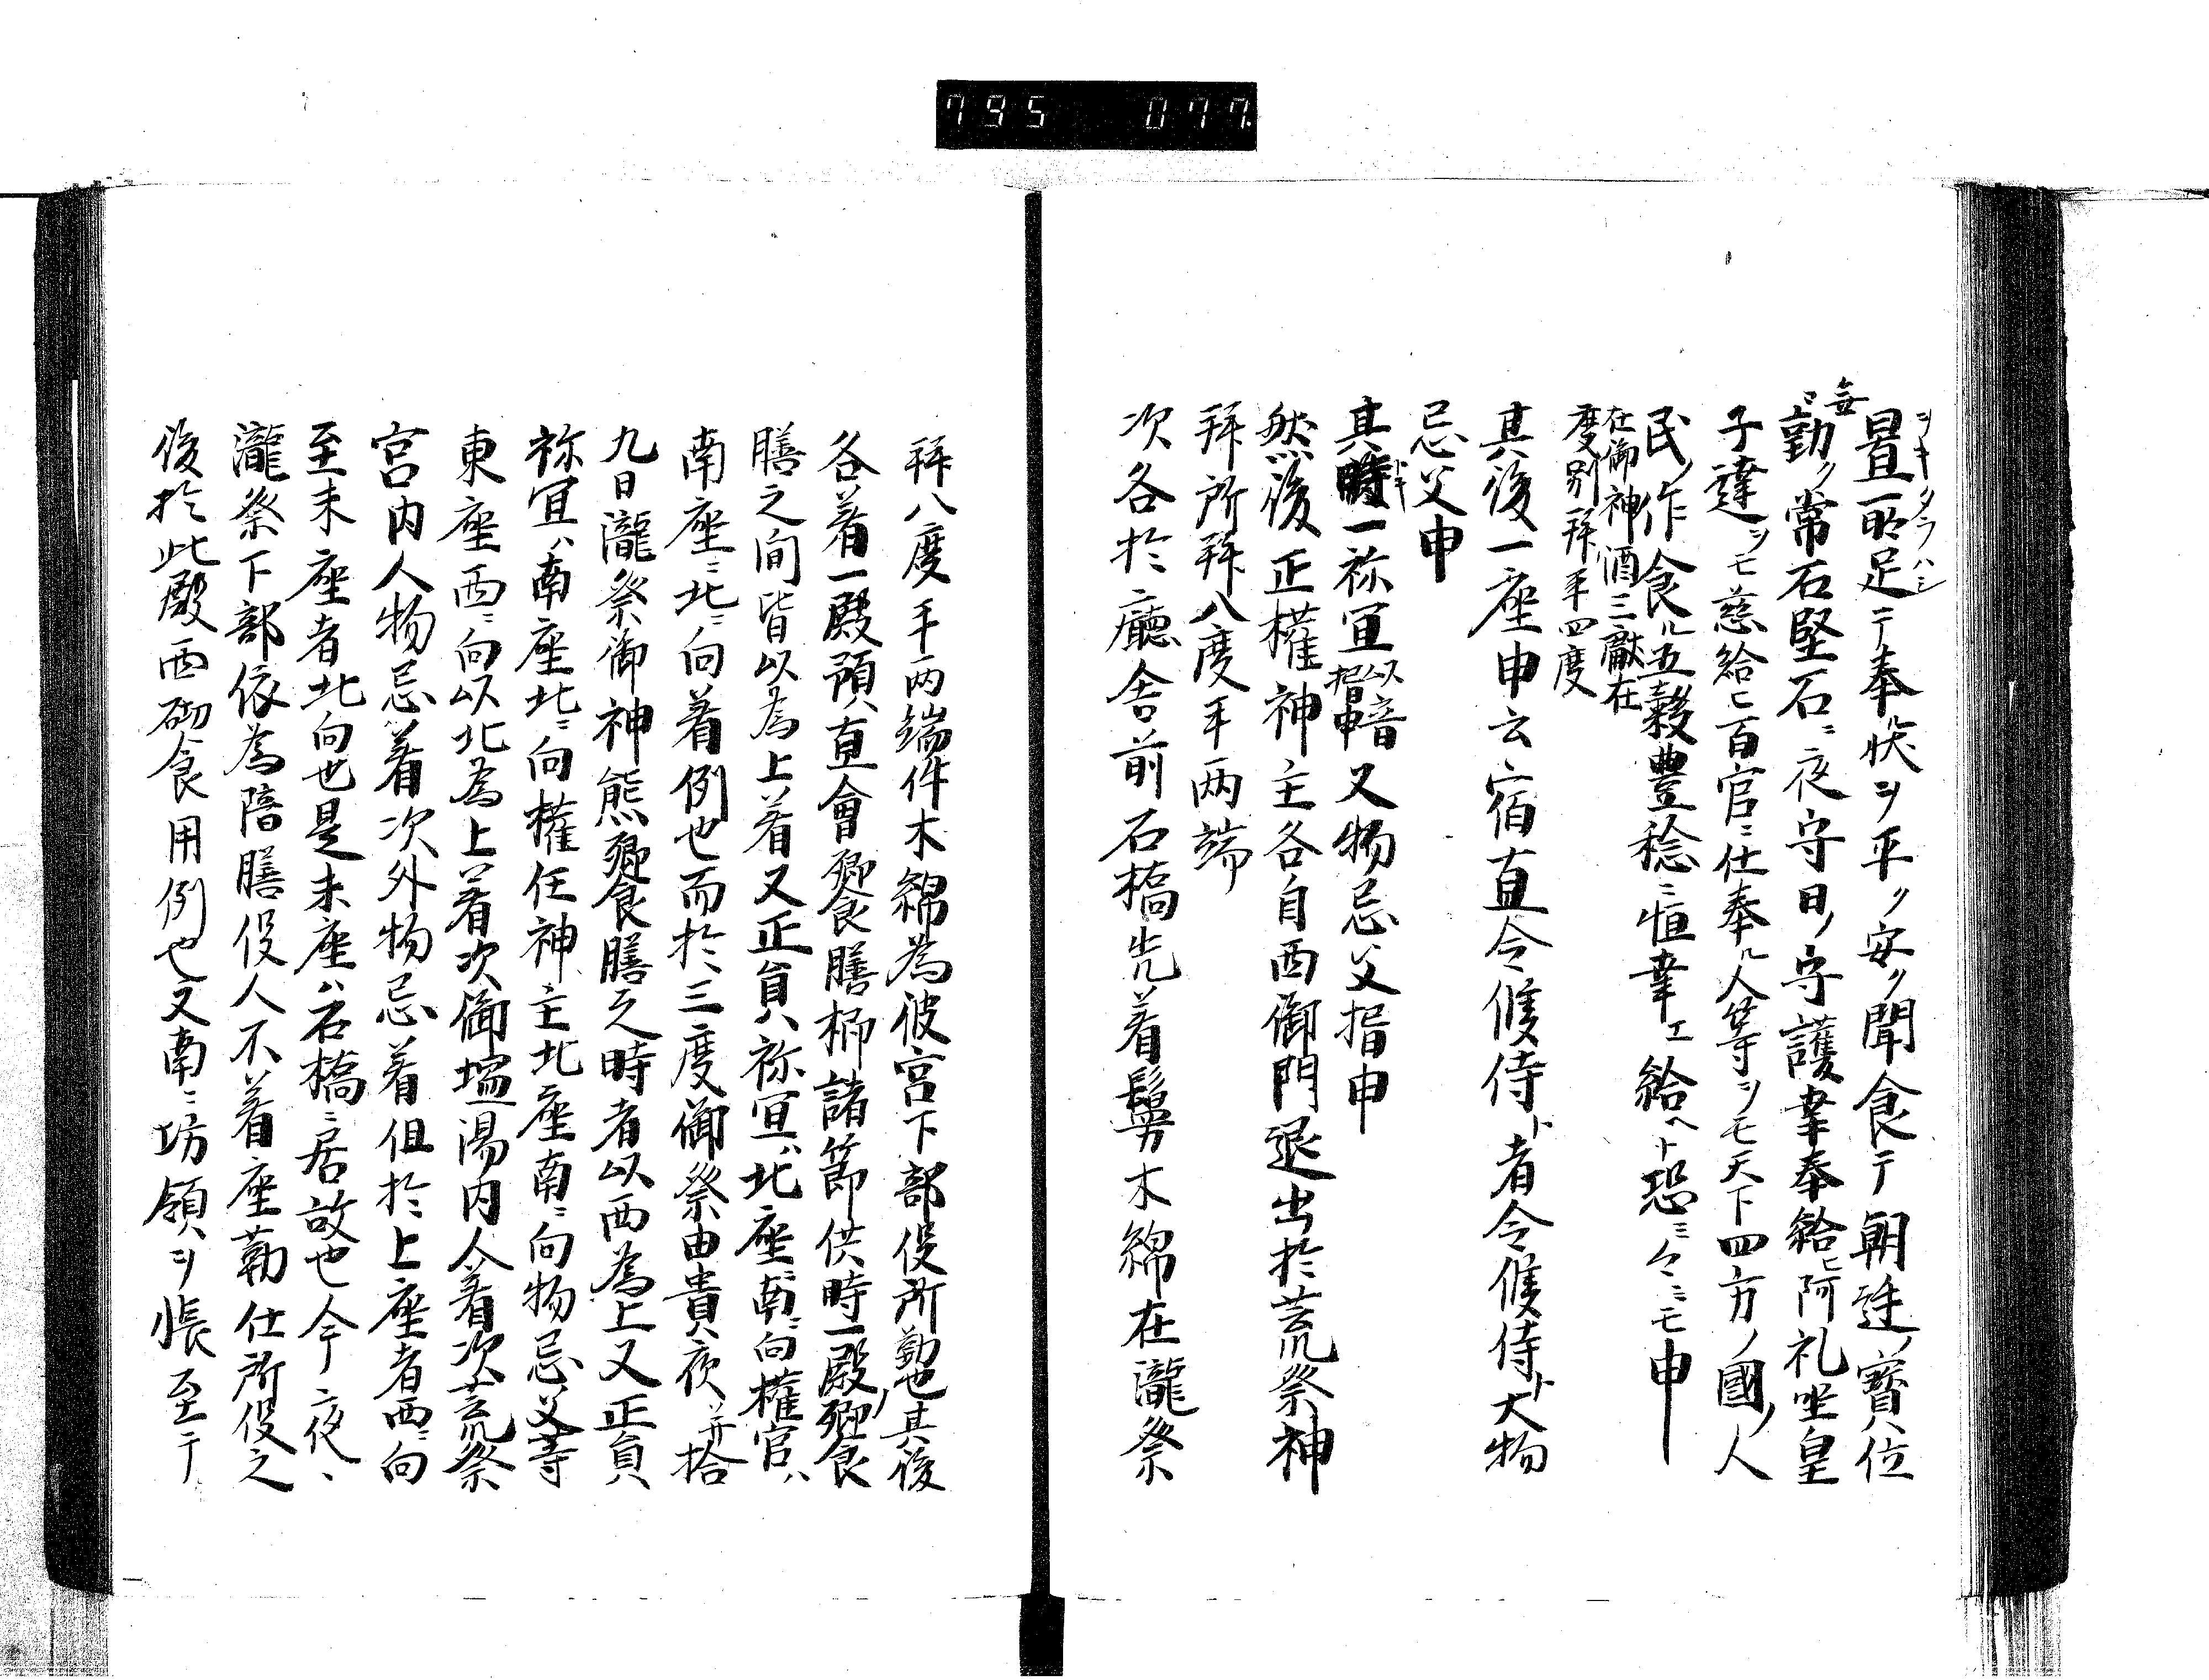 795 077.
置所足テ奉状ヲ平ク安ク聞食テ朝廷ノ寶位
無動ク常石堅石ニ夜守日ノ守護幸奉給ヒ阿礼坐皇
子達ヲモ慈給ヒ百官ニ仕奉ル人等ヲモ天下四方ノ國ノ人
民ノ作食ル五穀豊稔ニ恒幸エ給ヘト恐ミ々ミモ申
在御神酒三献在
度別拜手四度
其後一座申云宿直令候侍ト者令候侍ト大物
忌父申
其時一祢冝以音揖申又物忌父揖申
然後正權神主各自西御門退出於荒祭神
拜所拜八度手両端
次各於廳舎前石橋先着鬘木綿在瀧祭
拜八度手両端件木綿為彼宮下部役所勤也其後
各着一殿預直會饗膳栁諸節供時一殿ノ饗
膳之間皆以為上着又正員祢冝ハ北座ニ南ニ向權官ハ
南座ニ北ニ向着例也而於三度御祭由貴夜并拾
九日瀧祭御神態饗膳之時者以西為上又正員
祢冝ハ南座北ニ向權任神主北座南ニ向物忌父等
東座西ニ向以北為上着次御塩湯内人着次荒祭
宮内人物忌着次外物忌着但於上座者西ニ向
至末座者北向也是末座ハ石橋ニ居故也今夜ハ
瀧祭下部依為陪膳役人不着座勤仕所役之
後於此殿西砌食用例也又南ニ坊領ヲ悵至テ